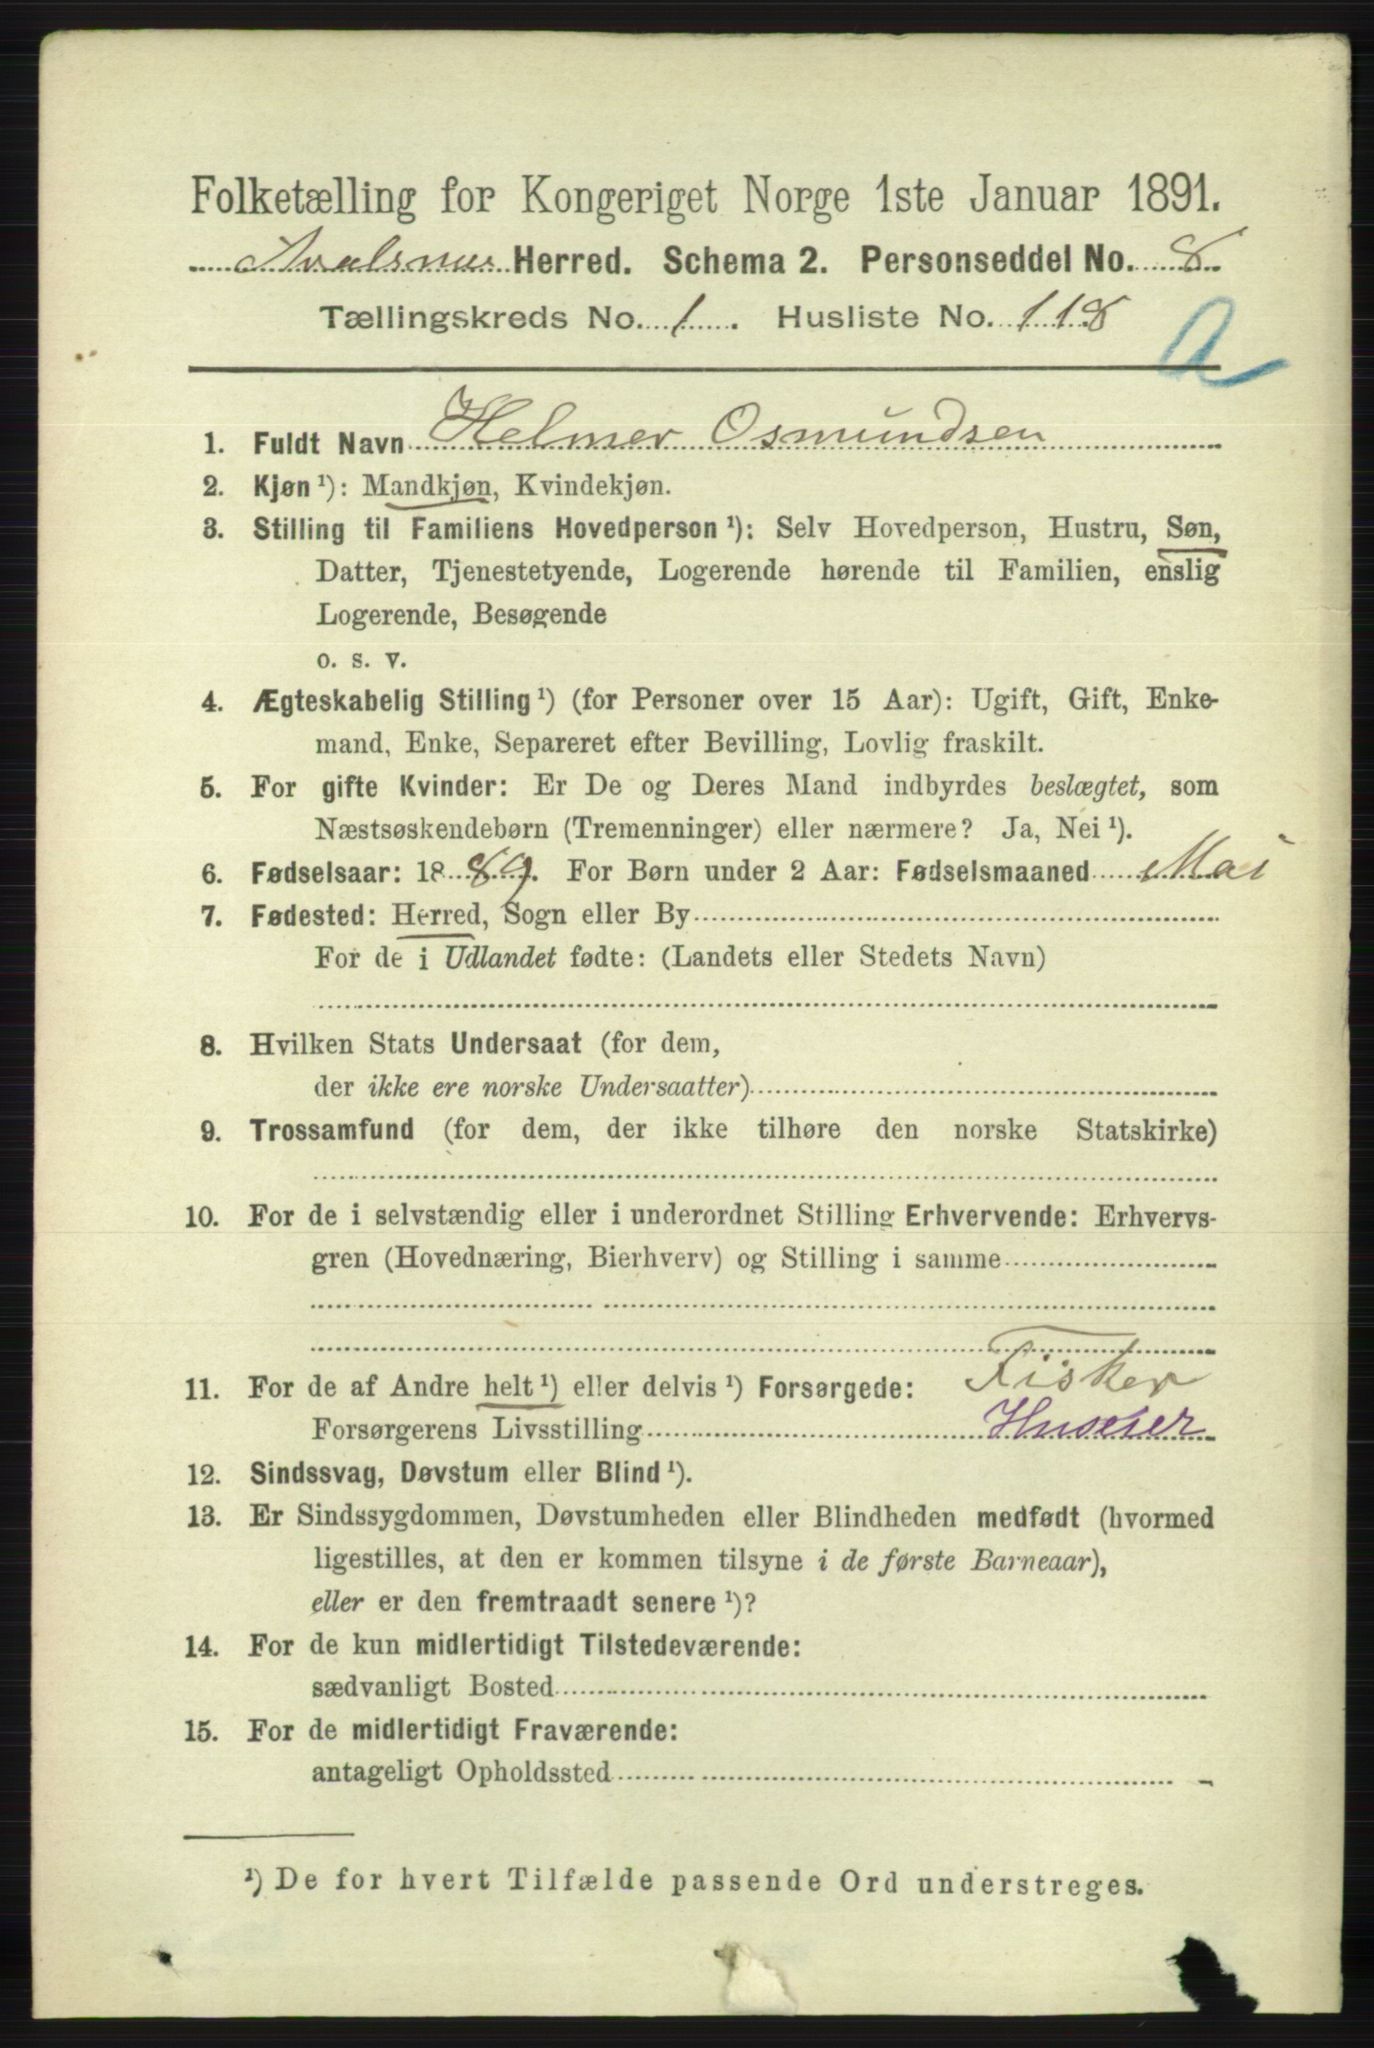 Folketælling for Kongeriget Norge 1ste Januar 1891.
Avalsnes Herred. Schema 2. Personseddel No. 8
Tællingskreds No. 1. Husliste No. 118
A
1. Fuldt Navn Helmer Osmundsen
2. Kjøn ¹): Mandkjøn, Kvindekjøn.
3. Stilling til Familiens Hovedperson ¹): Selv Hovedperson, Hustru, Søn,
Datter, Tjenestetyende, Logerende hørende til Familien, enslig
Logerende, Besøgende
o. s. v.
4. Ægteskabelig Stilling ¹) (for Personer over 15 Aar): Ugift, Gift, Enke-
mand, Enke, Separeret efter Bevilling, Lovlig fraskilt.
5. For gifte Kvinder: Er De og Deres Mand indbyrdes beslægtet, som
Næstsøskendebørn (Tremenninger) eller nærmere? Ja, Nei ¹).
6. Fødselsaar: 1889. For Børn under 2 Aar: Fødselsmaaned Mai
7. Fødested: Herred, Sogn eller By
For de i Udlandet fødte: (Landets eller Stedets Navn)
8. Hvilken Stats Undersaat (for dem,
der ikke ere norske Undersaatter)
9. Trossamfund (for dem, der ikke tilhøre den norske Statskirke)
10. For de i selvstændig eller i underordnet Stilling Erhvervende: Erhvervs-
gren (Hovednæring, Bierhverv) og Stilling i samme
11. For de af Andre helt ¹) eller delvis ¹) Forsørgede: Fisker
Forsørgerens Livsstilling Huseier
12. Sindssvag, Døvstum eller Blind ¹).
13. Er Sindssygdommen, Døvstumheden eller Blindheden medfødt (hvormed
ligestilles, at den er kommen tilsyne i de første Barneaar),
eller er den fremtraadt senere ¹)?
14. For de kun midlertidigt Tilstedeværende:
sædvanligt Bosted
15. For de midlertidigt Fraværende:
antageligt Opholdssted
¹) De for hvert Tilfælde passende Ord understreges.